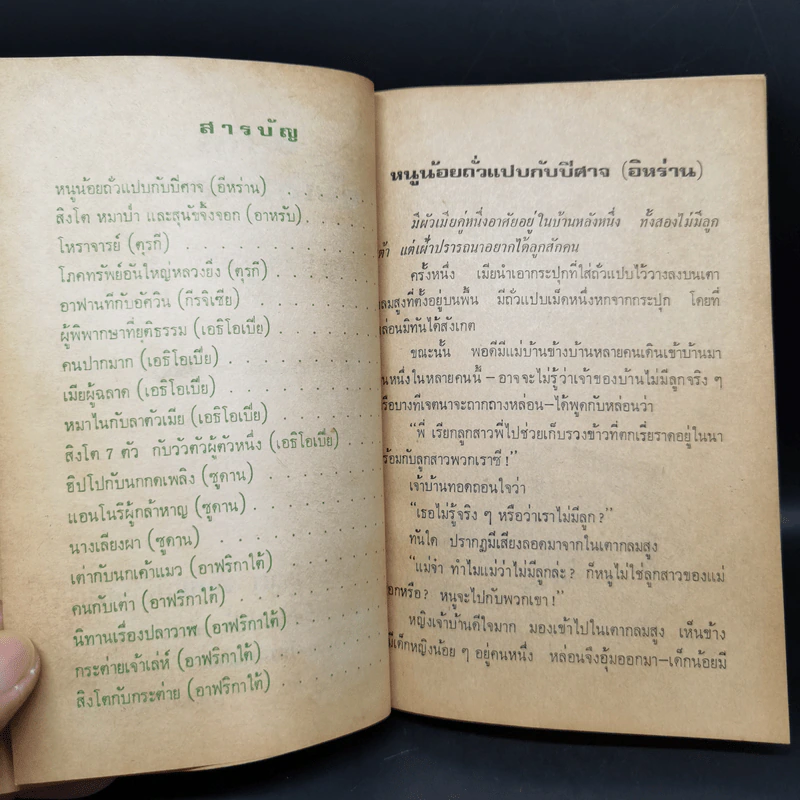 สารบัญ
หนูน้อยถั่วแปบกับปีศาจ (อีหร่าน) . . . . .
สิงโต หมาป่า และสุนัขจิ้งจอก (อาหรับ) . . . .
โหราจารย์ (ตุรกี) . . . . . . . . .
โภคทรัพย์อันใหญ่หลวงยิ่ง (ตุรกี) . . . . .
อาฟานทีกับอัศวิน (กีรจิเซีย) . . . . . .
ผู้พิพากษาที่ยุติธรรม (เอธิโอเปีย) . . . . .
คนปากมาก (เอธิโอเปีย) . . . . . . .
เมียผู้ฉลาด (เอธิโอเปีย) . . . . . . .
หมาไนกับลาตัวเมีย (เอธิโอเปีย) . . . . .
สิงโต 7 ตัว กับวัวตัวผู้ตัวหนึ่ง (เอธิโอเปีย) . .
ฮิปโปกับนกกดเพลิง (ซูดาน) . . . . . .
แอนโนริผู้กล้าหาญ (ซูดาน) . . . . . .
นางเลียงผา (ซูดาน) . . . . . . . .
เต่ากับนกเค้าแมว (อาฟริกาใต้) . . . . .
คนกับเต่า (อาฟริกาใต้) . . . . . . .
นิทานเรื่องปลาวาฬ (อาฟริกาใต้) . . . . .
กระต่ายเจ้าเล่ห์ (อาฟริกาใต้) . . . . . .
สิงโตกับกระต่าย (อาฟริกาใต้) . . . . . .
หนูน้อยถั่วแปบกับปีศาจ (อิหร่าน)
มีผัวเมียคู่หนึ่งอาศัยอยู่ในบ้านหลังหนึ่ง ทั้งสองไม่มีลูก
เต้า แต่เฝ้าปรารถนาอยากได้ลูกสักคน
ครั้งหนึ่ง เมียนำเอากระปุกที่ใส่ถั่วแปบไว้วางลงบนเตา
กลมสูงที่ตั้งอยู่บนพื้น มีถั่วแปบเม็ดหนึ่งหกจากกระปุก โดยที่
หล่อนมิทันได้สังเกต
ขณะนั้น พอดีมีแม่บ้านข้างบ้านหลายคนเดินเข้าบ้านมา
คนหนึ่งในหลายคนนี้ – อาจจะไม่รู้ว่าเจ้าของบ้านไม่มีลูกจริง ๆ
หรือบางทีเจตนาจะถากถางหล่อน – ได้พูดกับหล่อนว่า
“พี่ เรียกลูกสาวพี่ไปช่วยเก็บรวงข้าวที่ตกเรี่ยราดอยู่ในนา
พร้อมกับลูกสาวพวกเราซี !”
เจ้าบ้านทอดถอนใจว่า
“เธอไม่รู้จริง ๆ หรือว่าเราไม่มีลูก ?”
ทันใด ปรากฏมีเสียงลอดมาจากในเตากลมสูง
“แม่จ๋า ทำไมแม่ว่าไม่มีลูกล่ะ ? ก็หนูไม่ใช่ลูกสาวของแม่
ดอกหรือ ? หนูจะไปกับพวกเขา !”
หญิงเจ้าบ้านดีใจมาก มองเข้าไปในเตากลมสูง เห็นข้าง
มีเด็กหญิงน้อย ๆ อยู่คนหนึ่ง หล่อนจึงอุ้มออกมา – เด็กน้อยมี